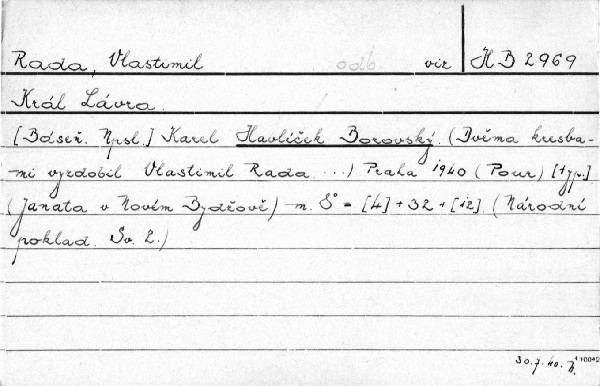 Rada, Vlastimil odb. viz HB 2969
Král Lávra.
[Báseň. Npsl.] Karel Havlíček Borovský. (Dvěma kresba-
mi vyzdobil Vlastimil Rada ...) Praha 1940 (Pour) [typ.]
(Janata v Novém Bydžově) m. 8° - [4] + 32 + [12]. (Národní
poklad. Sv. 2.)
30.7.40.